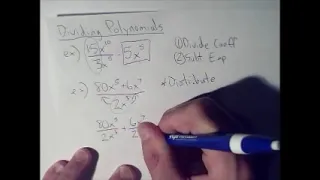 Dividing Polynomials
ex) 15x¹⁰ / 3x⁵ = 5x⁵
① Divide Coeff
② Subt Exp
ex) 80x⁵+6x⁷ / 2x³
* Distribute
80x⁵ / 2x³ + 6x⁷ / 2